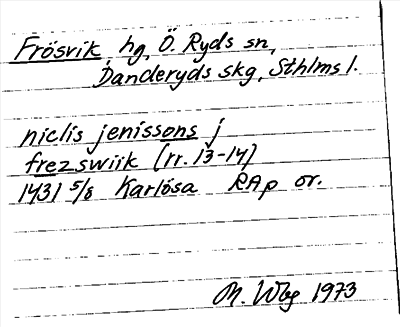 Frösvik, hg, Ö. Ryds sn,
Danderyds skg, Sthlms l.
niclis jenissons j
frezswiik (rr. 13-14)
1431 5/8 Karlösa RAp or.
M. Wbg 1973